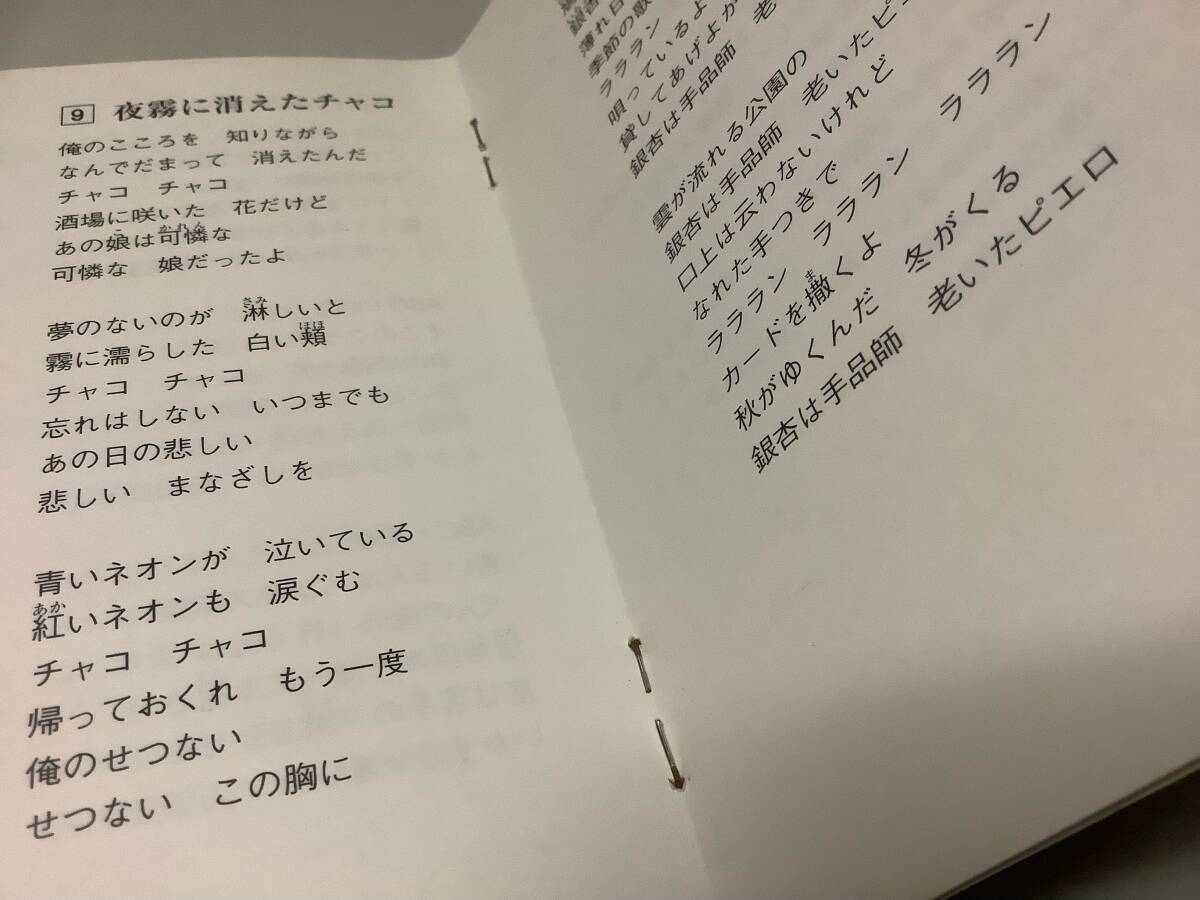 9 夜霧に消えたチャコ
俺のこころを 知りながら
なんでだまって 消えたんだ
チャコ チャコ
酒場に咲いた 花だけど
あの娘は可憐な
可憐な 娘だったよ
夢のないのが 淋しいと
霧に濡らした 白い頬
チャコ チャコ
忘れはしない いつまでも
あの日の悲しい
悲しい まなざしを
青いネオンが 泣いている
紅いネオンも 涙ぐむ
チャコ チャコ
帰っておくれ もう一度
俺のせつない
せつない この胸に
薄れ日
季節の歌
ラララン
唄っているよ
貸してあげよか
銀杏は手品師 老いたピエ
雲が流れる公園の
銀杏は手品師 老いたピエロ
口上は云わないけれど
なれた手つきで
ラララン ラララン ラララン
カードを撒くよ
秋がゆくんだ 冬がくる
銀杏は手品師 老いたピエロ